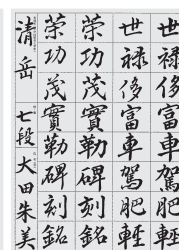 世禄侈富車駕肥軽
世禄侈富車駕肥軽
榮功茂實勒碑刻銘
榮功茂實勒碑刻銘
清岳 七段 大田朱美